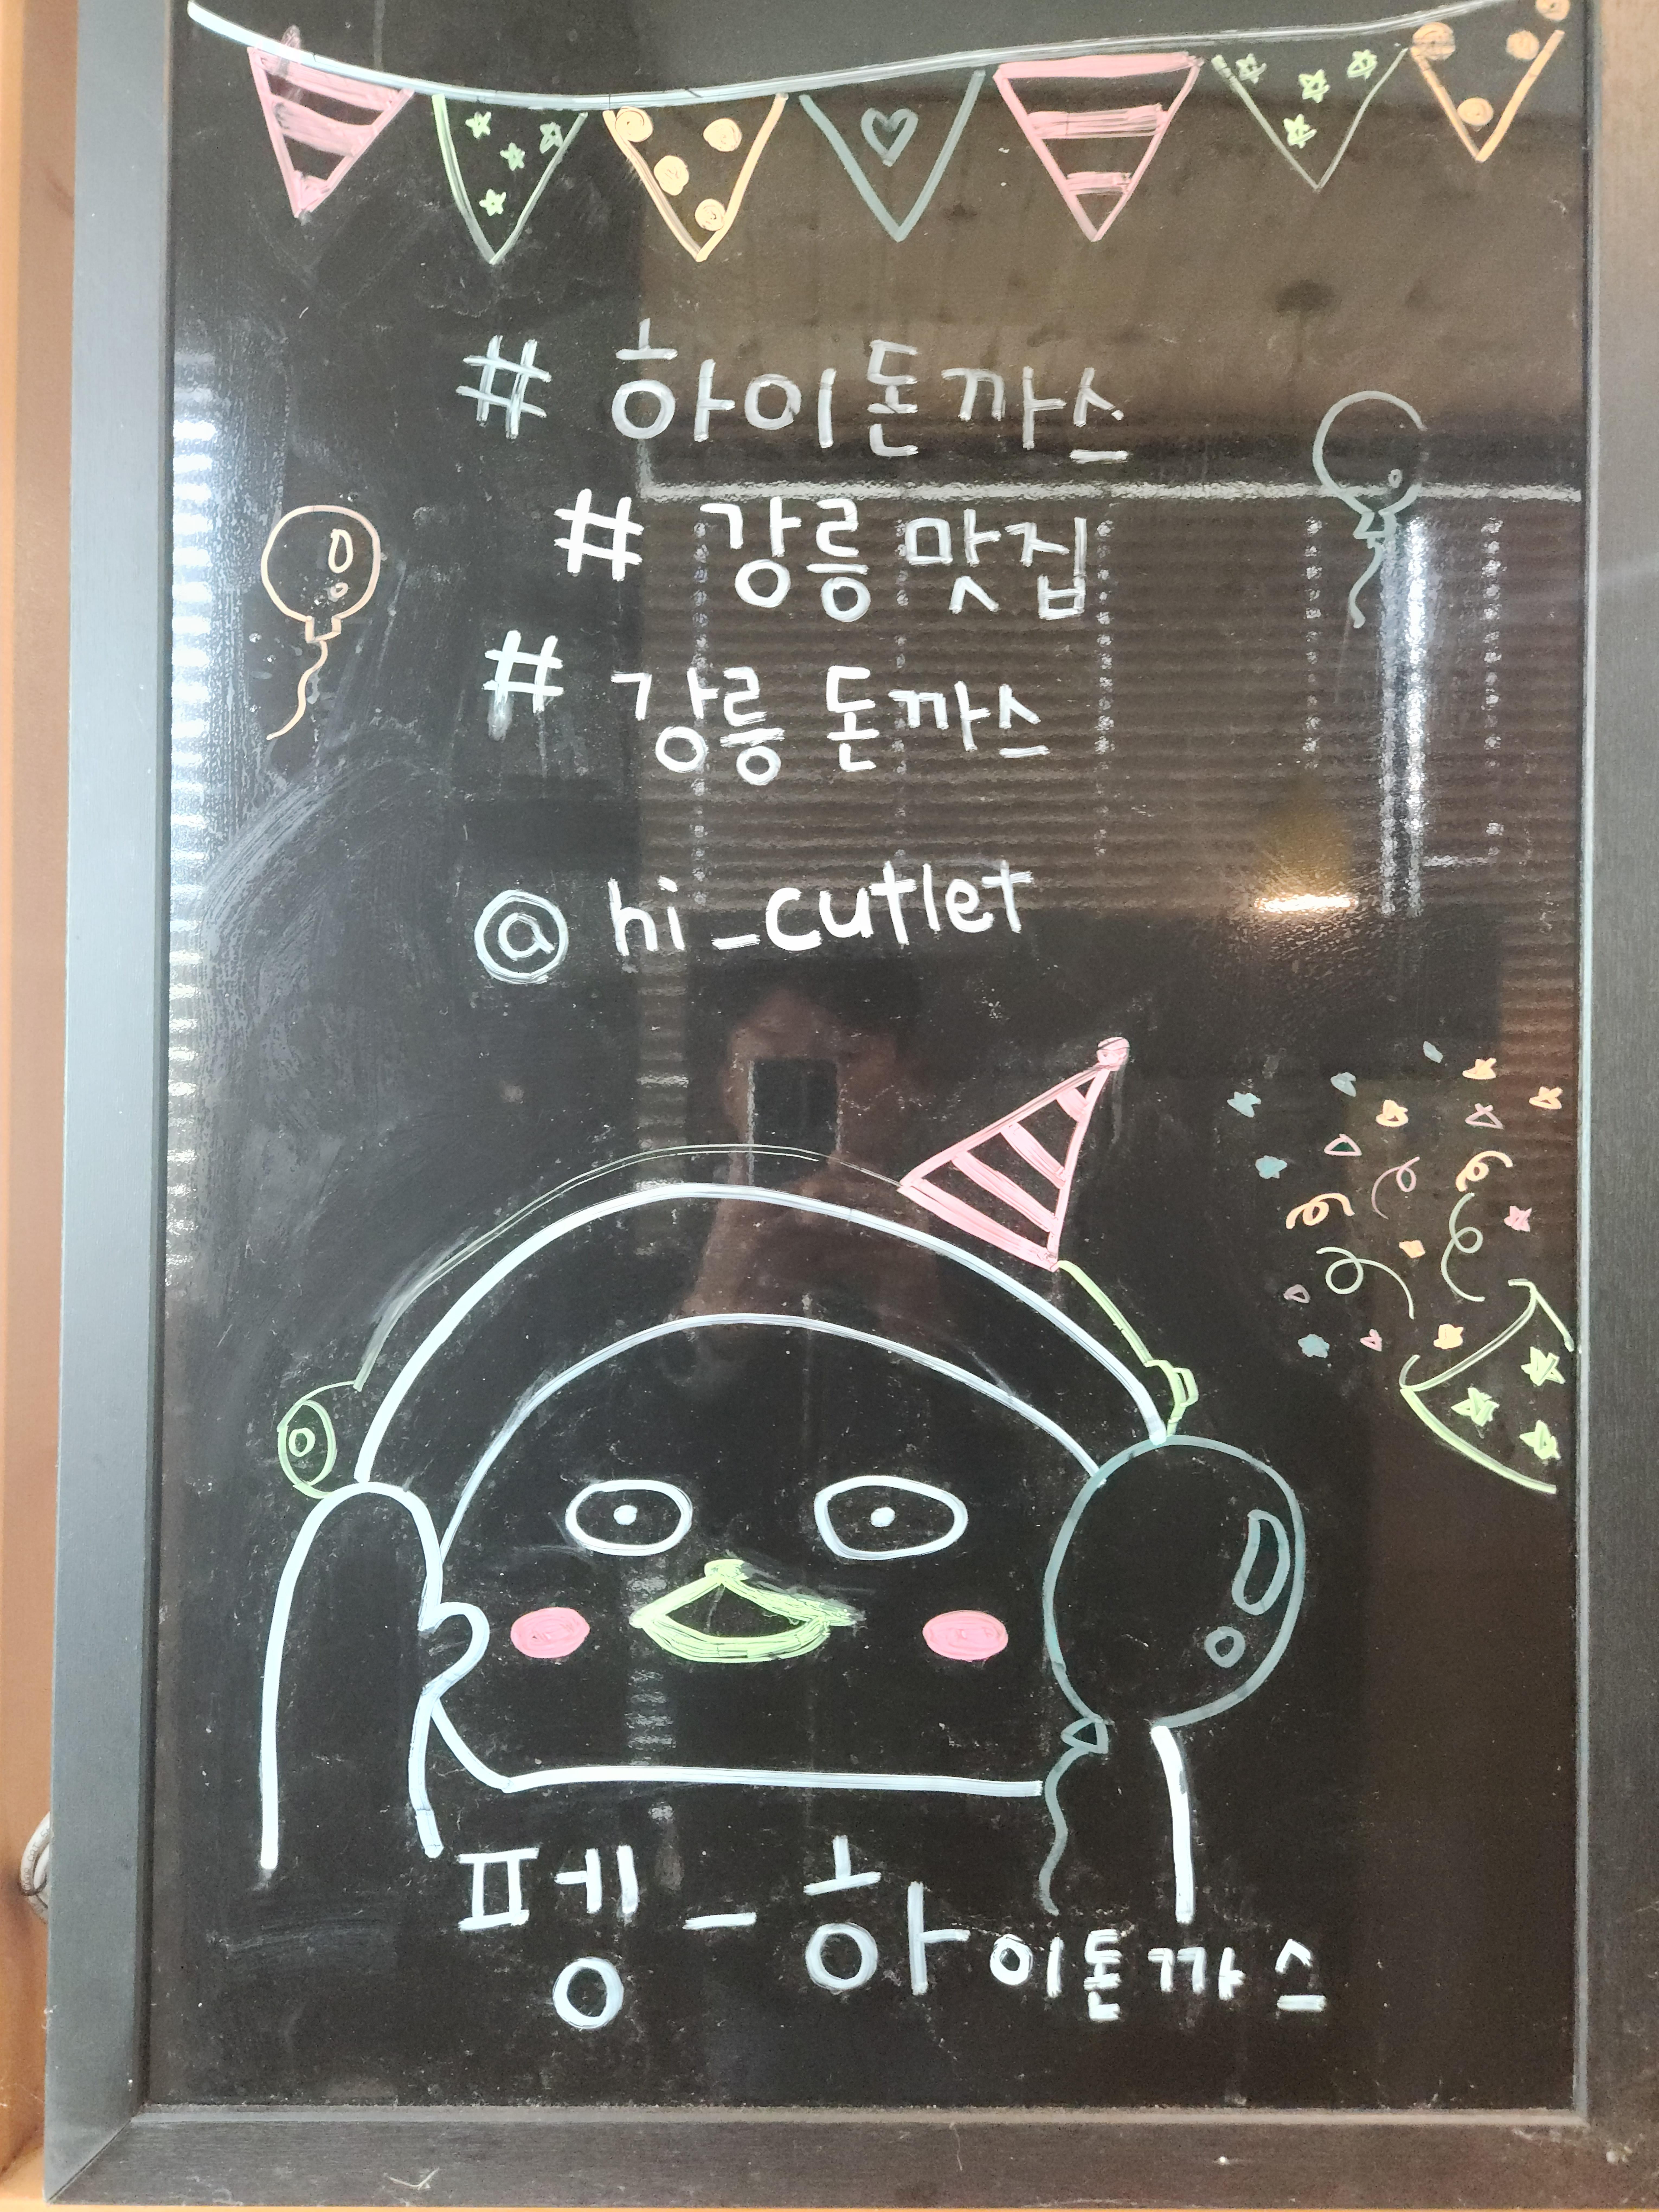 # 하이돈까스
# 강릉 맛집
# 강릉 돈까스
@ hi_cutlet
펭-하이돈까스